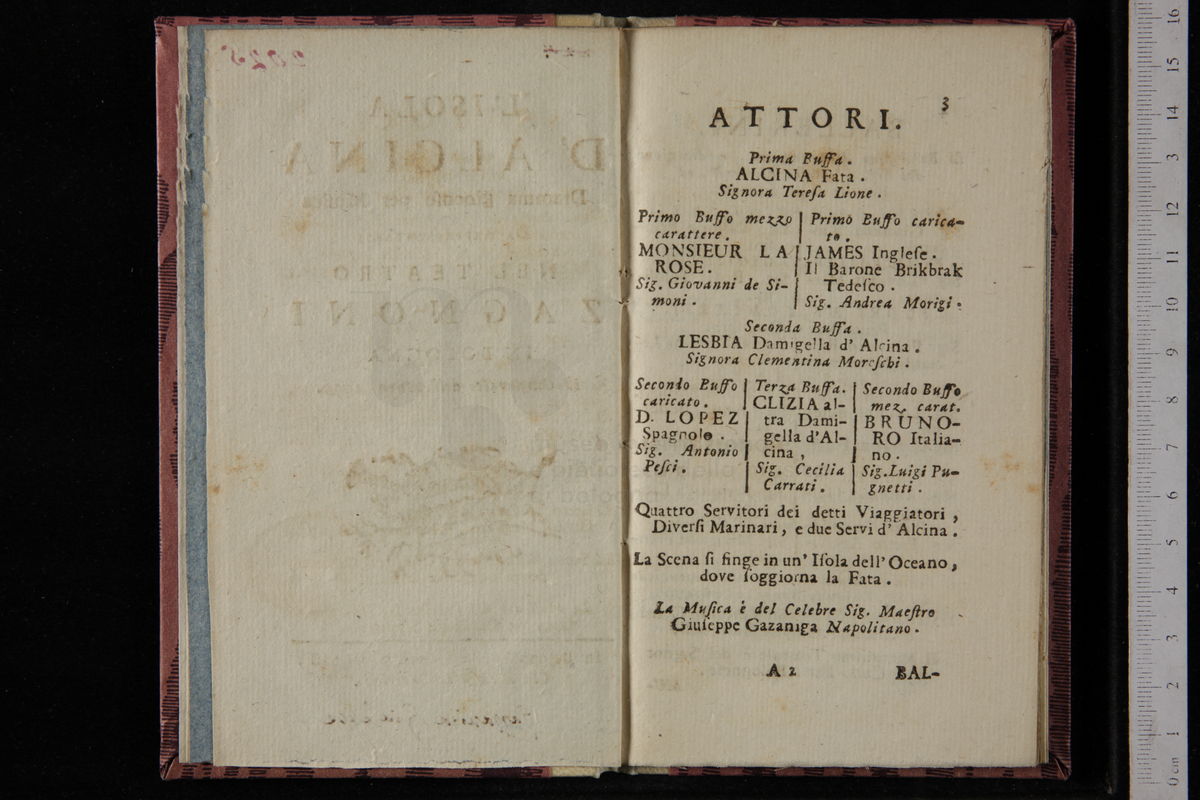 3
ATTORI.
Prima Buffa.
ALCINA Fata.
Signora Tereſa Lione.
Primo Buffo mezzo
carattere.
MONSIEUR LA
ROSE.
Sig. Giovanni de Si-
moni.
Primo Buffo carica-
to.
JAMES Ingleſe.
Il Barone Brikbrak
Tedeſco.
Sig. Andrea Morigi.
Seconda Buffa.
LESBIA Damigella d' Alcina.
Signora Clementina Moreſchi.
Secondo Buffo
caricato.
D. LOPEZ
Spagnolo.
Sig. Antonio
Peſci.
Terza Buffa.
CLIZIA al-
tra Dami-
gella d'Al-
cina,
Sig. Cecilia
Carrati.
Secondo Buffo
mez. carat.
BRUNO-
RO Italia-
no.
Sig. Luigi Pu-
gnetti.
Quattro Servitori dei detti Viaggiatori,
Diverſi Marinari, e due Servi d' Alcina.
La Scena ſi finge in un' Iſola dell' Oceano,
dove ſoggiorna la Fata.
La Muſica è del Celebre Sig. Maeſtro
Giuſeppe Gazaniga Napolitano.
A 2
BAL-
L'ISOLA
D'ALCINA
Dramma Giocoſo per Muſica
NEL TEATRO
ZAGNONI
2025
0 cm 1 2 3 4 5 6 7 8 9 10 11 12 13 14 15 16